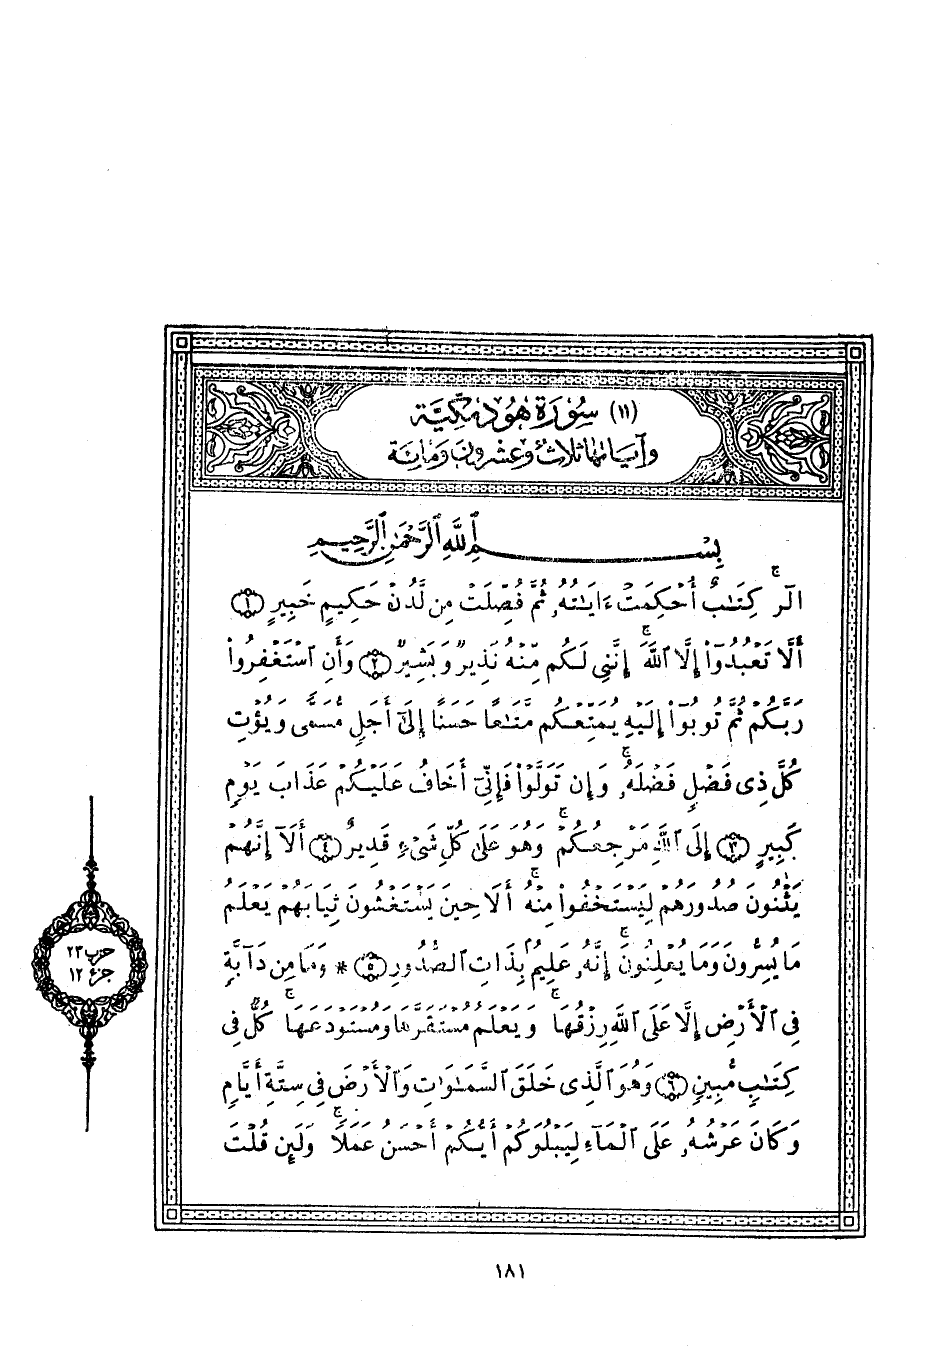 (١١) سُورَة هُود مَكيَّة
وَآيَاتُهَا ثَلَاثٌ وَعِشْرُونَ وَمَائَة
بِسْمِ ٱللَّهِ ٱلرَّحْمَٰنِ ٱلرَّحِيمِ
الٓر ۚ كِتَٰبٌ أُحْكِمَتْ ءَايَٰتُهُۥ ثُمَّ فُصِّلَتْ مِن لَّدُنْ حَكِيمٍ خَبِيرٍ ﴿١﴾
أَلَّا تَعْبُدُوٓا۟ إِلَّا ٱللَّهَ ۚ إِنَّنِى لَكُم مِّنْهُ نَذِيرٌ وَبَشِيرٌ ﴿٢﴾ وَأَنِ ٱسْتَغْفِرُوا۟
رَبَّكُمْ ثُمَّ تُوبُوٓا۟ إِلَيْهِ يُمَتِّعْكُم مَّتَٰعًا حَسَنًا إِلَىٰٓ أَجَلٍ مُّسَمًّى وَيُؤْتِ
كُلَّ ذِى فَضْلٍ فَضْلَهُۥ ۖ وَإِن تَوَلَّوْا۟ فَإِنِّىٓ أَخَافُ عَلَيْكُمْ عَذَابَ يَوْمٍ
كَبِيرٍ ﴿٣﴾ إِلَى ٱللَّهِ مَرْجِعُكُمْ ۖ وَهُوَ عَلَىٰ كُلِّ شَىْءٍ قَدِيرٌ ﴿٤﴾ أَلَآ إِنَّهُمْ
يَثْنُونَ صُدُورَهُمْ لِيَسْتَخْفُوا۟ مِنْهُ ۚ أَلَا حِينَ يَسْتَغْشُونَ ثِيَابَهُمْ يَعْلَمُ
مَا يُسِرُّونَ وَمَا يُعْلِنُونَ ۚ إِنَّهُۥ عَلِيمٌۢ بِذَاتِ ٱلصُّدُورِ ﴿٥﴾ * وَمَا مِن دَآبَّةٍ
فِى ٱلْأَرْضِ إِلَّا عَلَى ٱللَّهِ رِزْقُهَا وَيَعْلَمُ مُسْتَقَرَّهَا وَمُسْتَوْدَعَهَا ۚ كُلٌّ فِى
كِتَٰبٍ مُّبِينٍ ﴿٦﴾ وَهُوَ ٱلَّذِى خَلَقَ ٱلسَّمَٰوَٰتِ وَٱلْأَرْضَ فِى سِتَّةِ أَيَّامٍ
وَكَانَ عَرْشُهُۥ عَلَى ٱلْمَآءِ لِيَبْلُوَكُمْ أَيُّكُمْ أَحْسَنُ عَمَلًا ۗ وَلَئِن قُلْتَ
حزب ٢٣
جزء ١٢
١٨١